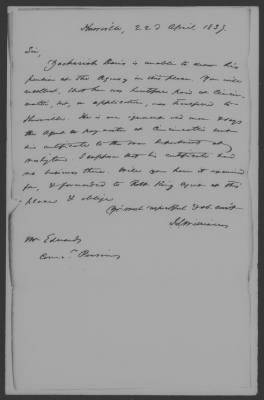 Knoxville, 22d April 1837.
Sir,
Zachariah Davis is unable to draw his
pension at the Agency in this place. You will
recollect, that he was heretofore paid at Cincin-
natti, but, on application, was transferred to
Knoxville. He is now
the Agent at Cincinnatti sent
his certificate to the War Department at
I suppose that his certificate had
no business there. Will you have it examined
for, & forwarded to Robt King Agent at this
place & oblige
Yr most respectful & ob. servt
Williams
Mr Edwards
Comr. Pensions